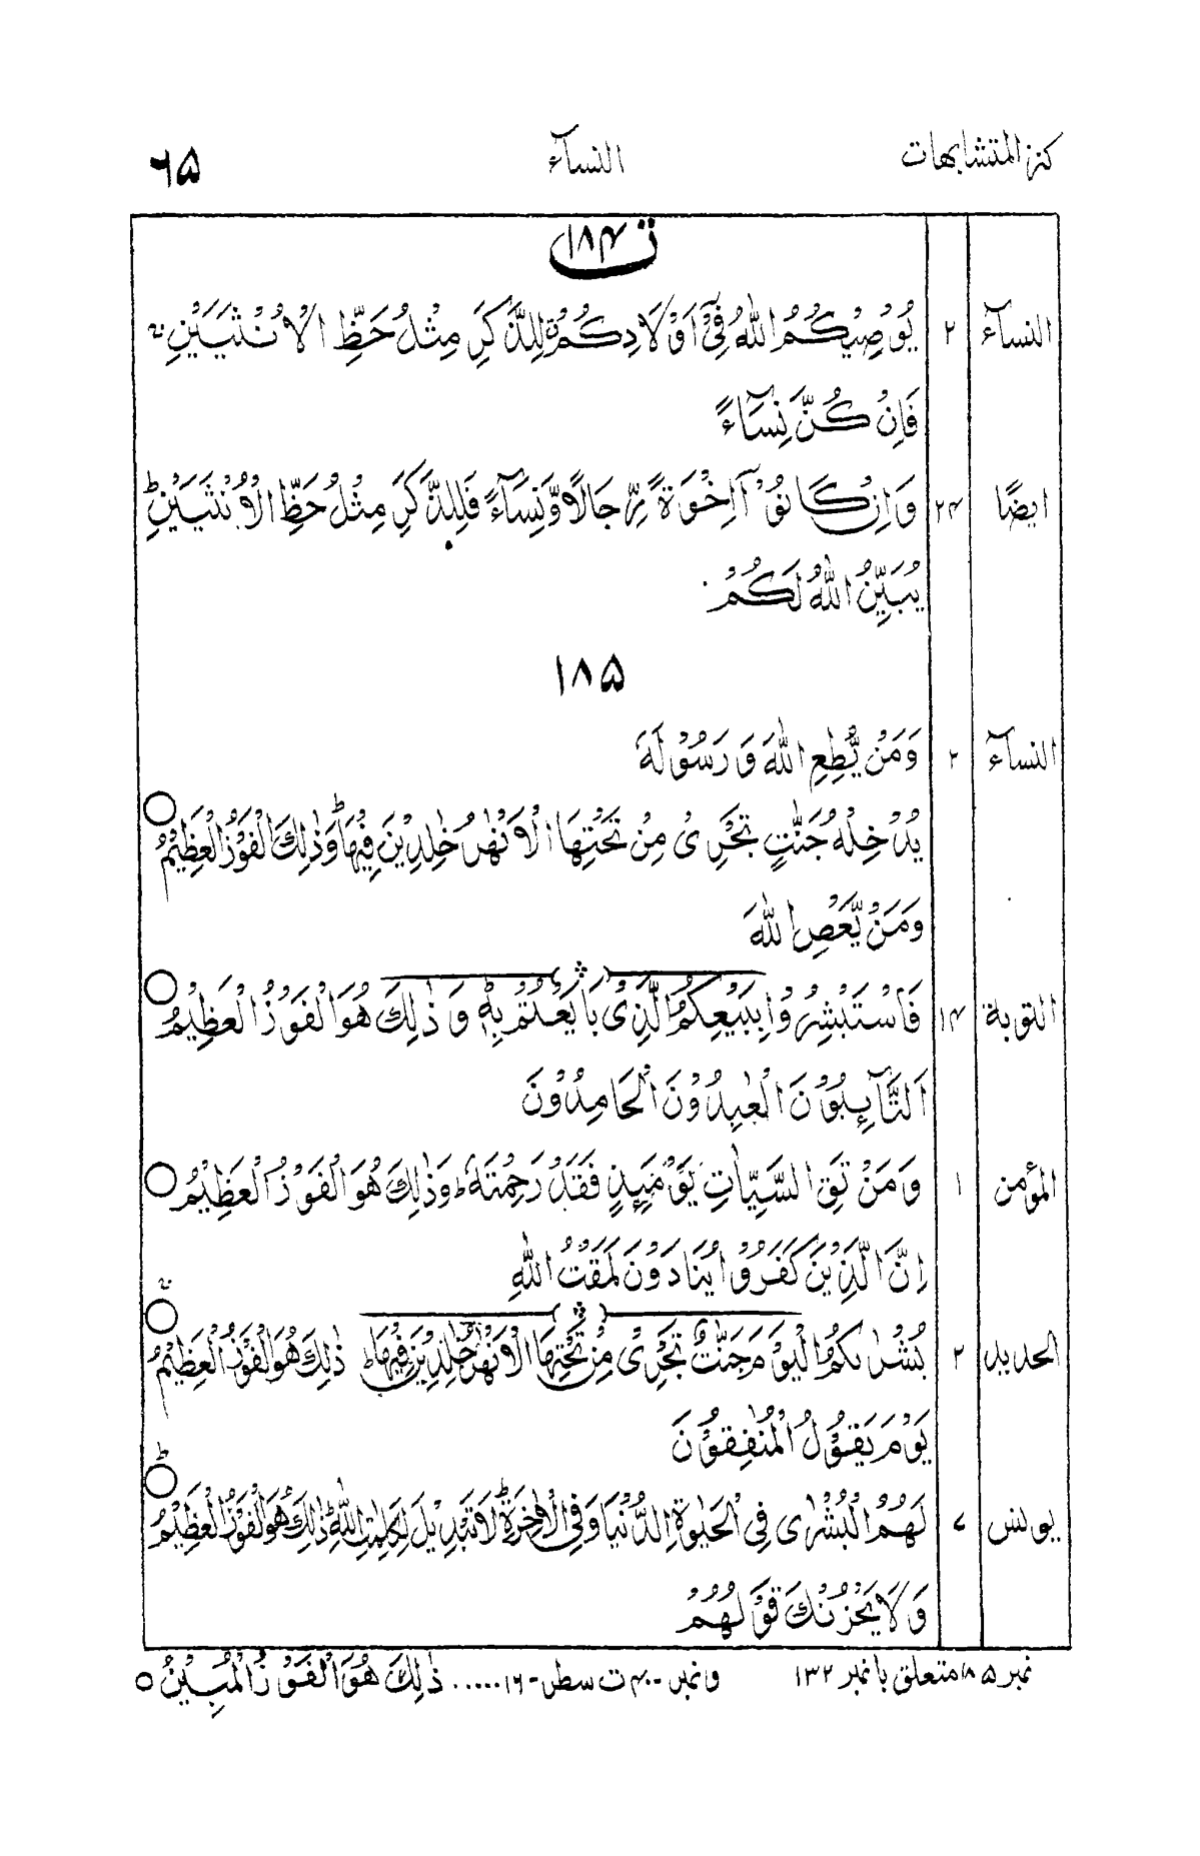 كنز المتشابهات النسآء ۶۵
ت ۱۸۴
النسآء ۲ يُوْصِيْكُمُ اللّٰهُ فِيْٓ اَوْلَادِكُمْ لِلذَّكَرِ مِثْلُ حَظِّ الْاُنْثَيَيْنِ
فَاِنْ كُنَّ نِسَآءً
ايضًا ۲۴ وَاِنْ كَانُوْٓا اِخْوَةً رِّجَالًا وَّنِسَآءً فَلِلذَّكَرِ مِثْلُ حَظِّ الْاُنْثَيَيْنِ ؕ
يُبَيِّنُ اللّٰهُ لَكُمْ
۱۸۵
النسآء ۲ وَمَنْ يُّطِعِ اللّٰهَ وَرَسُوْلَهٗ
يُدْخِلْهُ جَنّٰتٍ تَجْرِيْ مِنْ تَحْتِهَا الْاَنْهٰرُ خٰلِدِيْنَ فِيْهَا ؕ وَذٰلِكَ الْفَوْزُ الْعَظِيْمُ ○
وَمَنْ يَّعْصِ اللّٰهَ
التوبة ۱۴ فَاسْتَبْشِرُوْا بِبَيْعِكُمُ الَّذِيْ بَايَعْتُمْ بِهٖ ؕ وَذٰلِكَ هُوَ الْفَوْزُ الْعَظِيْمُ ○
اَلتَّآئِبُوْنَ الْعٰبِدُوْنَ الْحَامِدُوْنَ
المؤمن ۱ وَمَنْ تَقِ السَّيِّاٰتِ يَوْمَئِذٍ فَقَدْ رَحِمْتَهٗ ؕ وَذٰلِكَ هُوَ الْفَوْزُ الْعَظِيْمُ ○
اِنَّ الَّذِيْنَ كَفَرُوْا يُنَادَوْنَ لَمَقْتُ اللّٰهِ
الحديد ۲ بُشْرٰىكُمُ الْيَوْمَ جَنّٰتٌ تَجْرِيْ مِنْ تَحْتِهَا الْاَنْهٰرُ خٰلِدِيْنَ فِيْهَا ؕ ذٰلِكَ هُوَ الْفَوْزُ الْعَظِيْمُ ○
يَوْمَ يَقُوْلُ الْمُنٰفِقُوْنَ
يونس ۷ لَهُمُ الْبُشْرٰى فِي الْحَيٰوةِ الدُّنْيَا وَفِي الْاٰخِرَةِ ؕ لَا تَبْدِيْلَ لِكَلِمٰتِ اللّٰهِ ؕ ذٰلِكَ هُوَ الْفَوْزُ الْعَظِيْمُ ○
وَلَا يَحْزُنْكَ قَوْلُهُمْ
نمبر ۱۸۵ متعلق با نمبر ۱۳۲ و نمبر ۴۰۰ ت سطر ۱۶ ..... ذٰلِكَ هُوَ الْفَوْزُ الْمُبِيْنُ ○